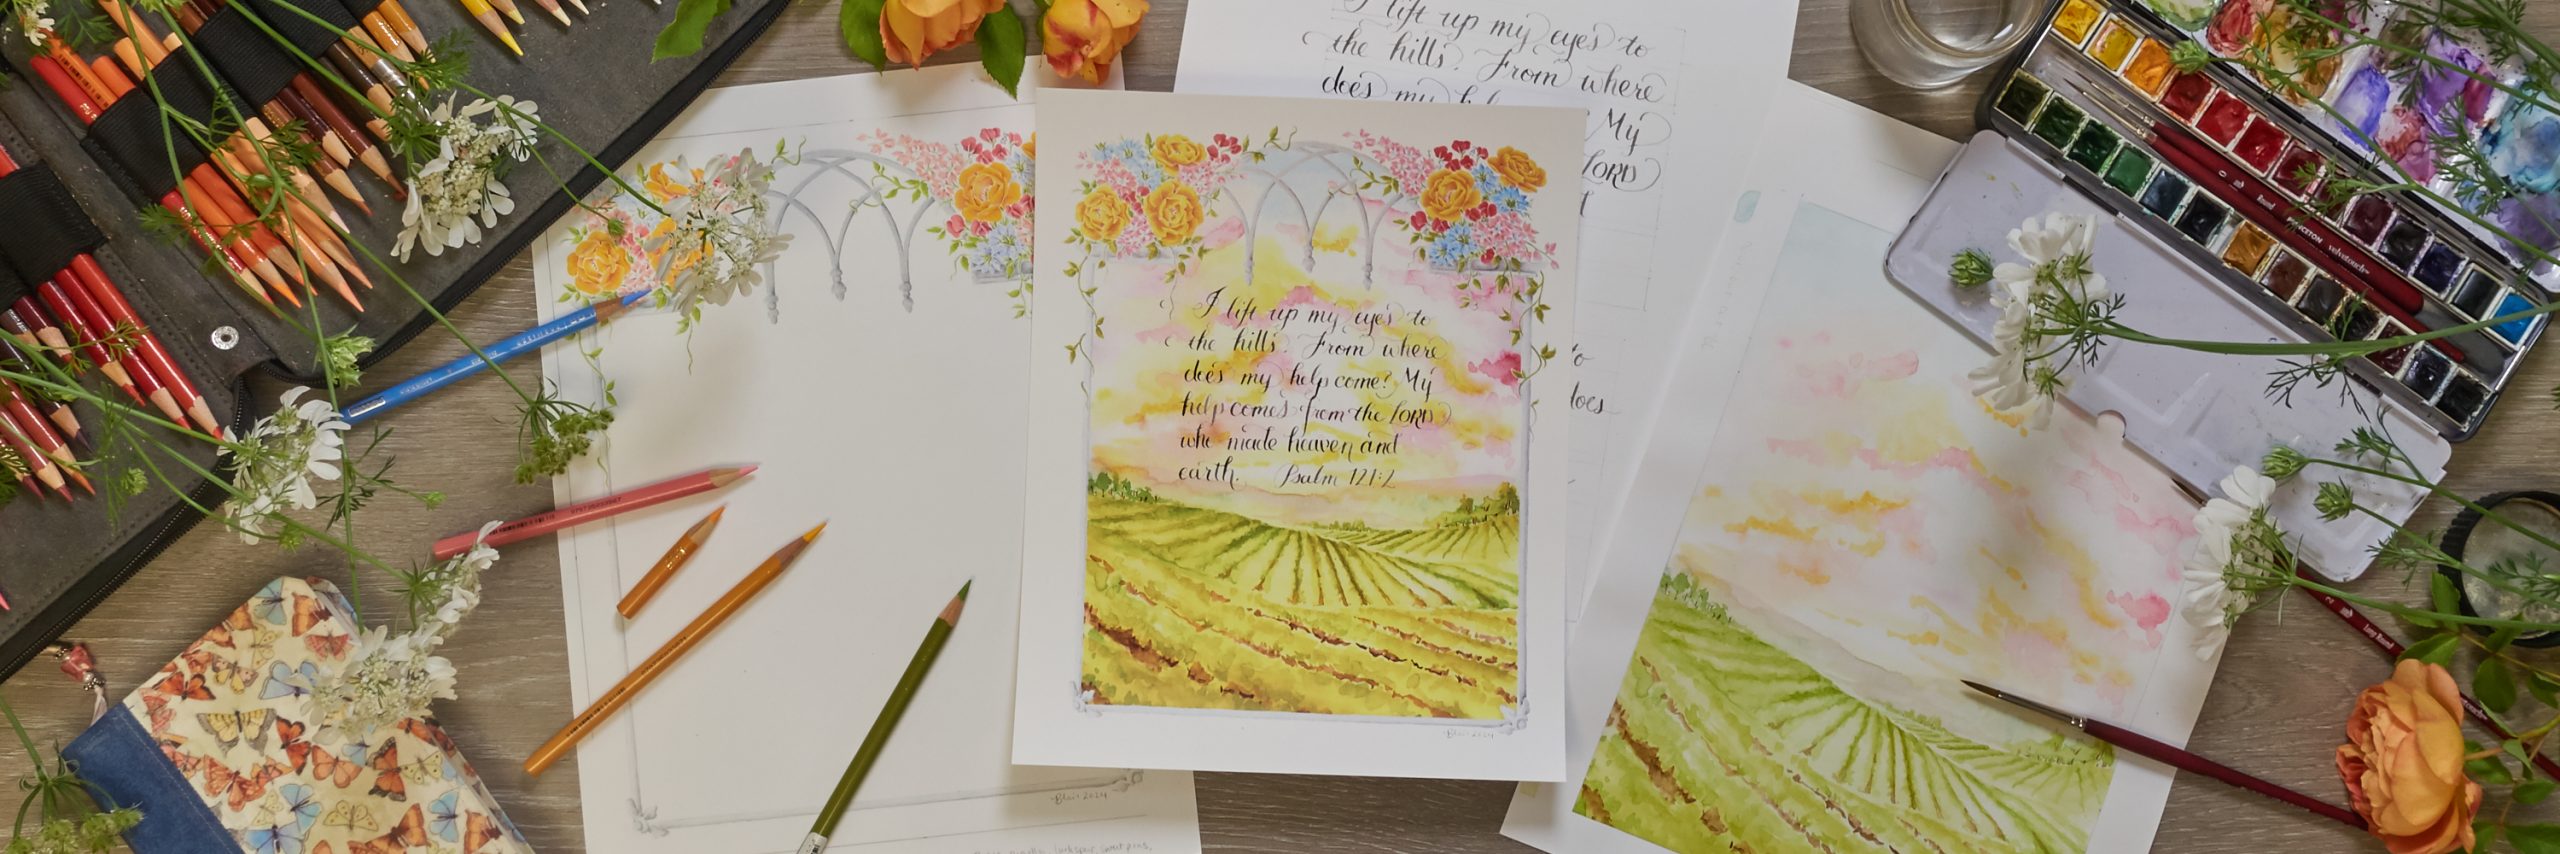 I lift up my eyes to
the hills. From where
does my
My
LORD
I lift up my eyes to
the hills. From where
does my help come? My
help comes from the LORD
who made heaven and
earth. Psalm 121:2
to
does
Blair 2024
Blair 2024
larkspur, sweet peas,
PRINCETON velvetouch